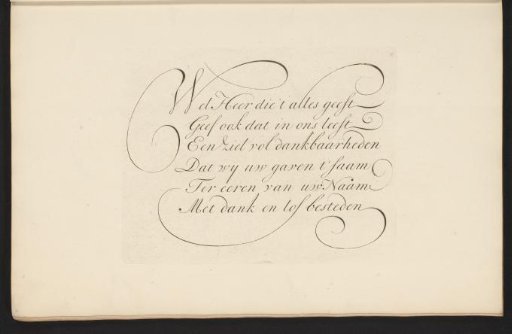 Wel Heer die't alles geeft
Geef ook dat in ons leeft
Een ziel vol dankbaarheden
Dat wy uw gaven t'saam
Ter eeren van uw Naam
Met dank en lof besteden